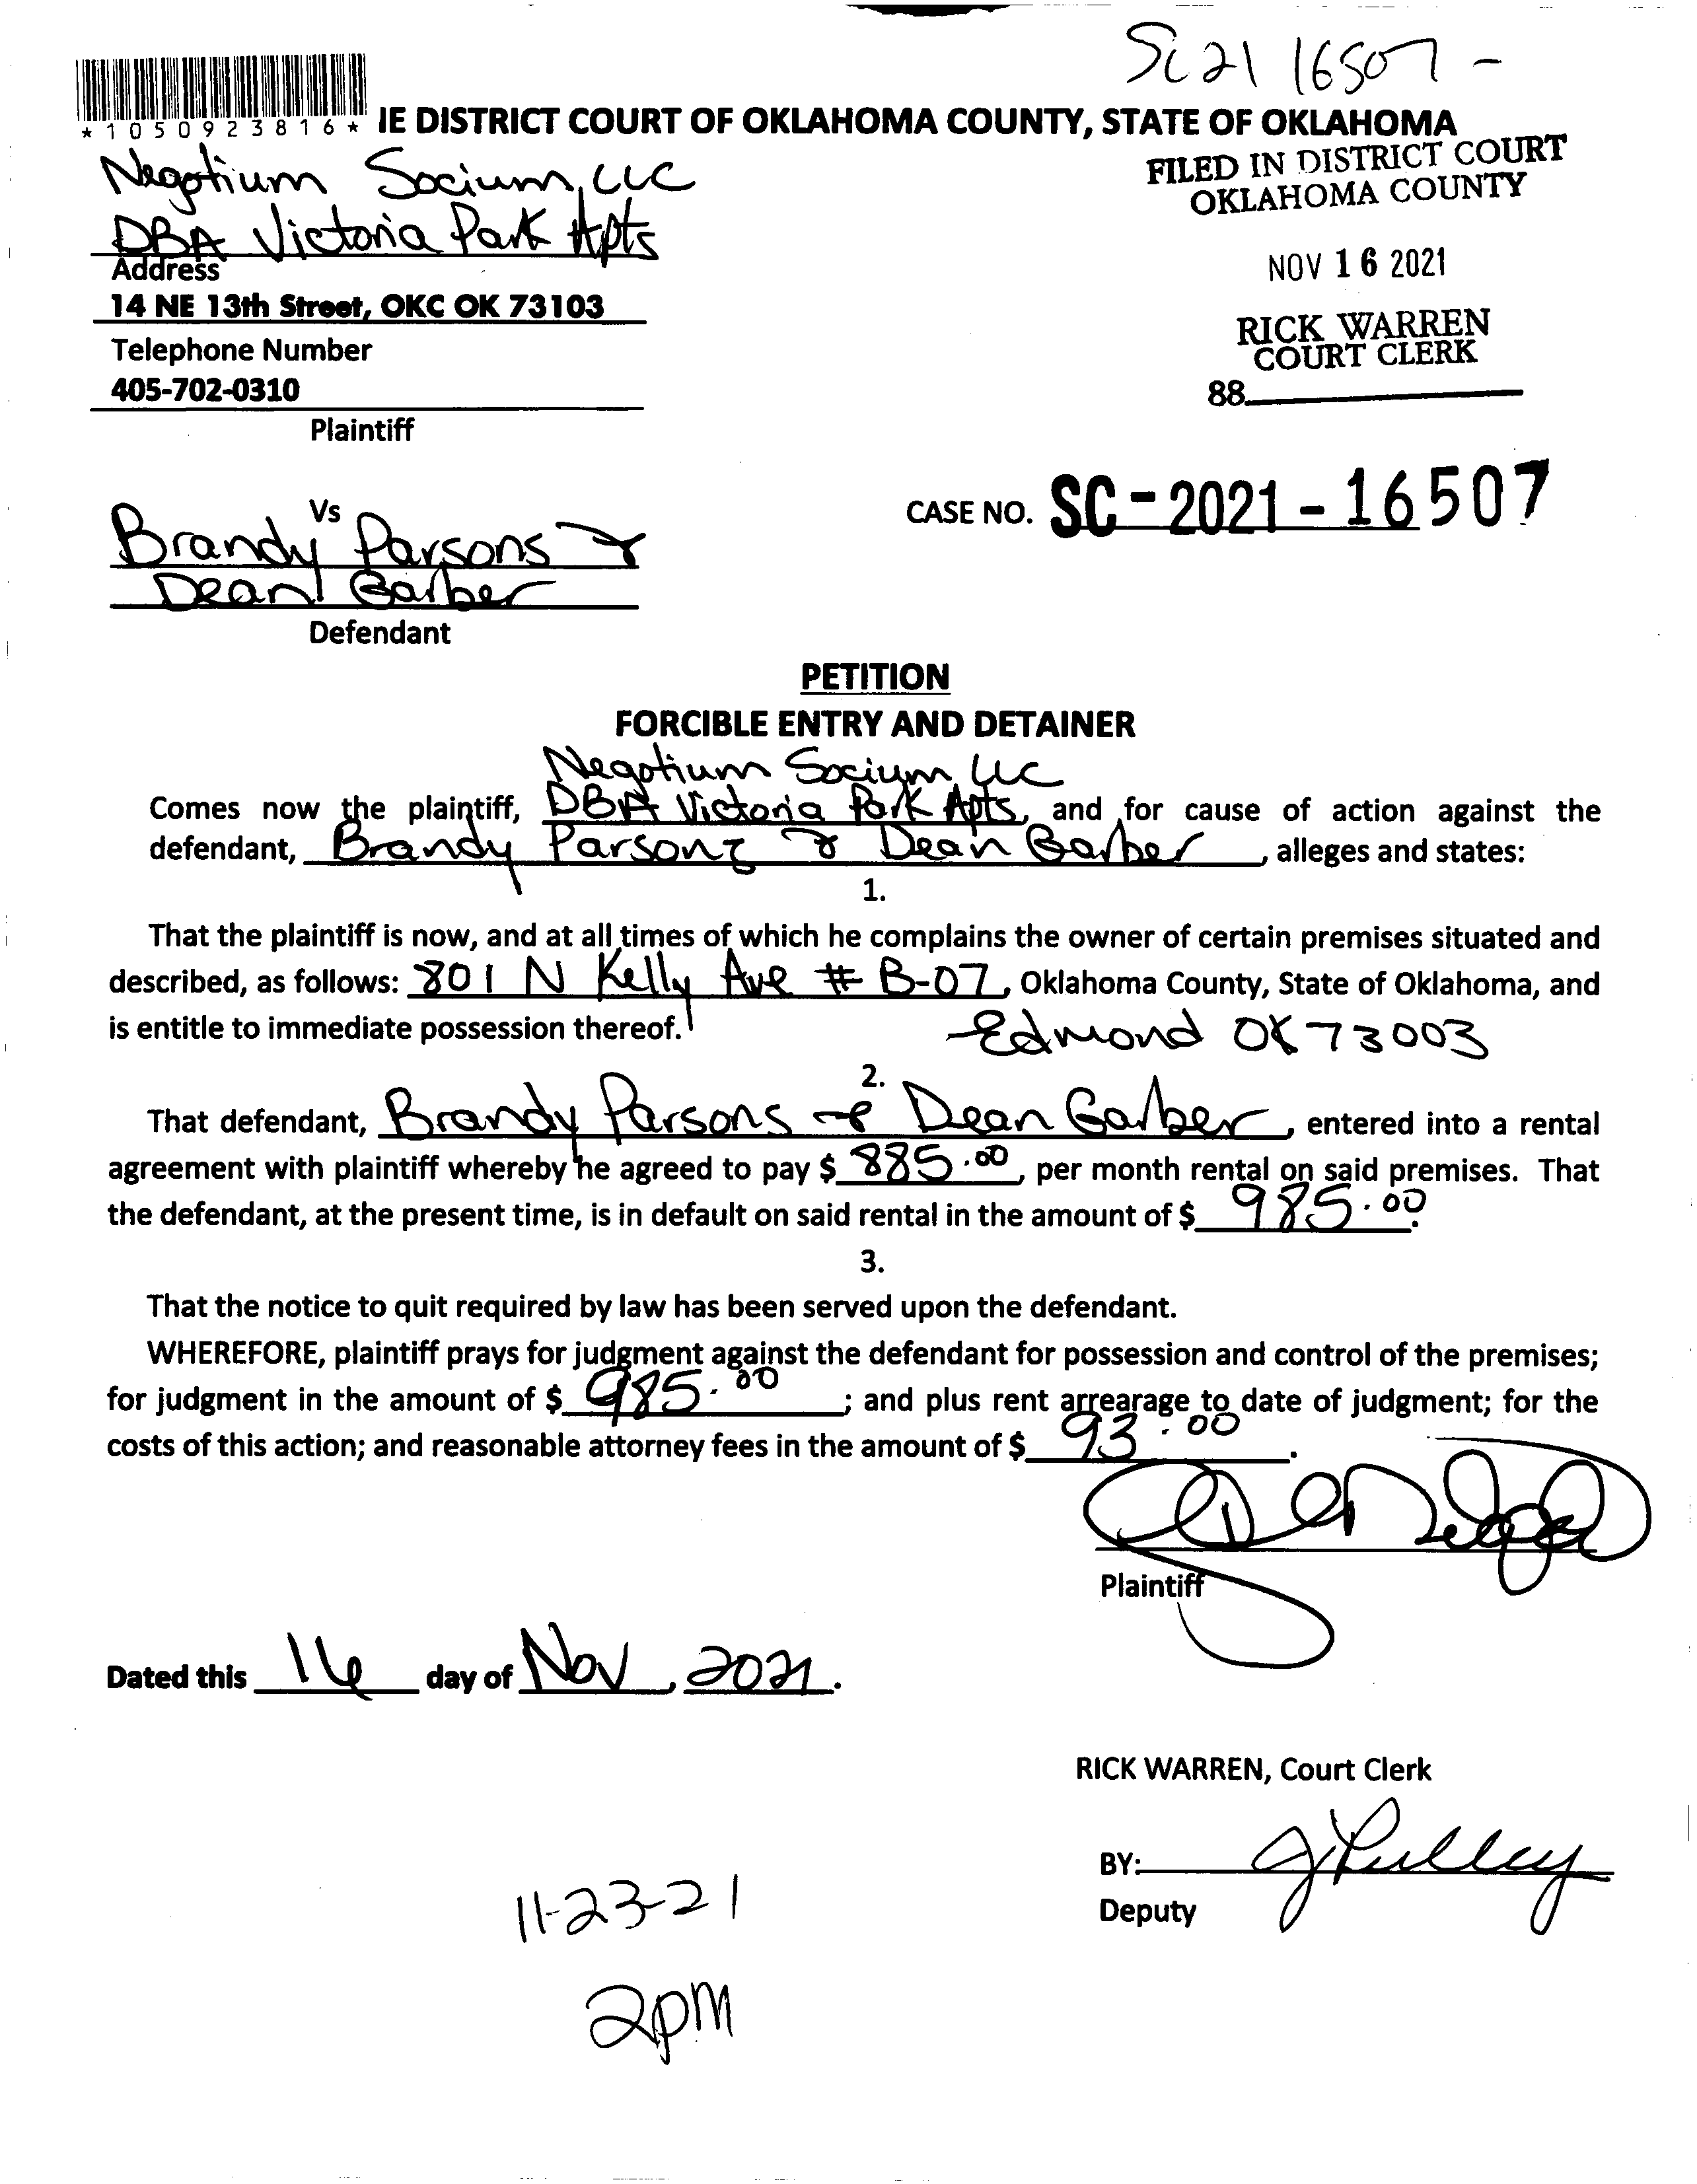 SC21 16507 -
*1050923816*
IE DISTRICT COURT OF OKLAHOMA COUNTY, STATE OF OKLAHOMA
Negotium Socium, LLC
DBA Victoria Park Apts
Address
14 NE 13th Street, OKC OK 73103
Telephone Number
405-702-0310
Plaintiff
FILED IN DISTRICT COURT
OKLAHOMA COUNTY
NOV 16 2021
RICK WARREN
COURT CLERK
88
Vs
Brandy Parsons &
Dean Garber
Defendant
CASE NO. SC-2021-16507
PETITION
FORCIBLE ENTRY AND DETAINER
Negotium Socium, LLC
Comes now the plaintiff, DBA Victoria Park Apts, and for cause of action against the
defendant, Brandy Parsons & Dean Garber, alleges and states:
1.
That the plaintiff is now, and at all times of which he complains the owner of certain premises situated and
described, as follows: 801 N Kelly Ave # B-07, Oklahoma County, State of Oklahoma, and
is entitle to immediate possession thereof. Edmond OK 73003
2.
That defendant, Brandy Parsons & Dean Garber, entered into a rental
agreement with plaintiff whereby he agreed to pay $ 885.00, per month rental on said premises. That
the defendant, at the present time, is in default on said rental in the amount of $ 985.00.
3.
That the notice to quit required by law has been served upon the defendant.
WHEREFORE, plaintiff prays for judgment against the defendant for possession and control of the premises;
for judgment in the amount of $ 985.00; and plus rent arrearage to date of judgment; for the
costs of this action; and reasonable attorney fees in the amount of $ 93.00.
Plaintiff
Dated this 16 day of Nov, 2021.
RICK WARREN, Court Clerk
BY: J Pulley
Deputy
11-23-21
2pm